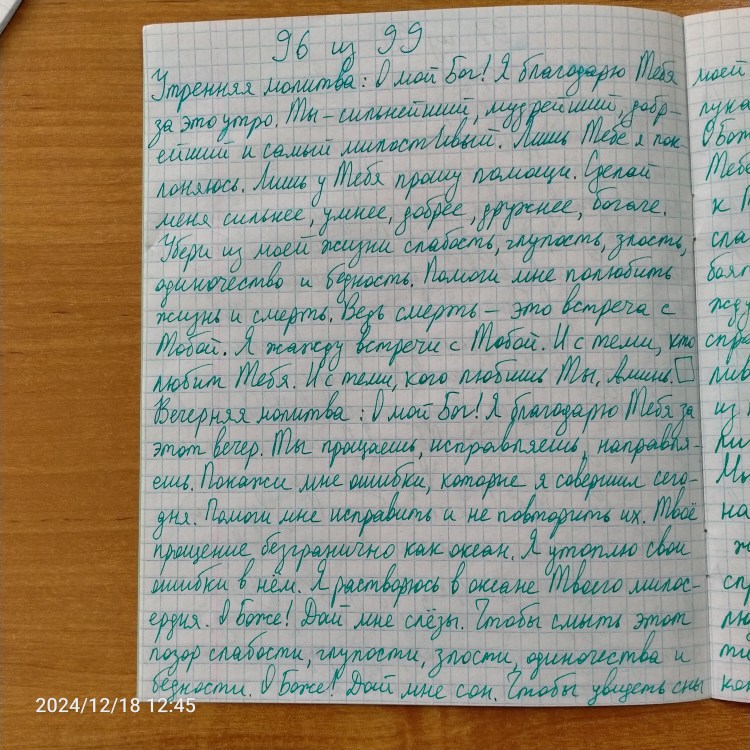 96 из 99
Утренняя молитва: О мой Бог! Я благодарю Тебя
за это утро. Ты – сильнейший, мудрейший, добр-
ейший и самый милостивый. Лишь Тебе я пок-
лоняюсь. Лишь у Тебя прошу помощи. Сделай
меня сильнее, умнее, добрее, дружнее, богаче.
Убери из моей жизни слабость, глупость, злость,
одиночество и бедность. Помоги мне полюбить
жизнь и смерть. Ведь смерть – это встреча с
Тобой. Я жажду встречи с Тобой. И с теми, кто
любит Тебя. И с теми, кого любишь Ты, Аминь.
Вечерняя молитва: О мой Бог! Я благодарю Тебя за
этот вечер. Ты прощаешь, исправляешь, направля-
ешь. Покажи мне ошибки, которые я совершил сего-
дня. Помоги мне исправить и не повторить их. Твоё
прощение безгранично как океан. Я утоплю свои
ошибки в нём. Я растворюсь в океане Твоего милос-
ердия. О Боже! Дай мне слёзы. Чтобы смыть этот
позор слабости, глупости, злости, одиночества и
бедности. О Боже! Дай мне сон. Чтобы увидеть сны
моей
О Бож
Тебе
к Т
сла
ждy
спра
из
на
сп
лю
2024/12/18 12:45